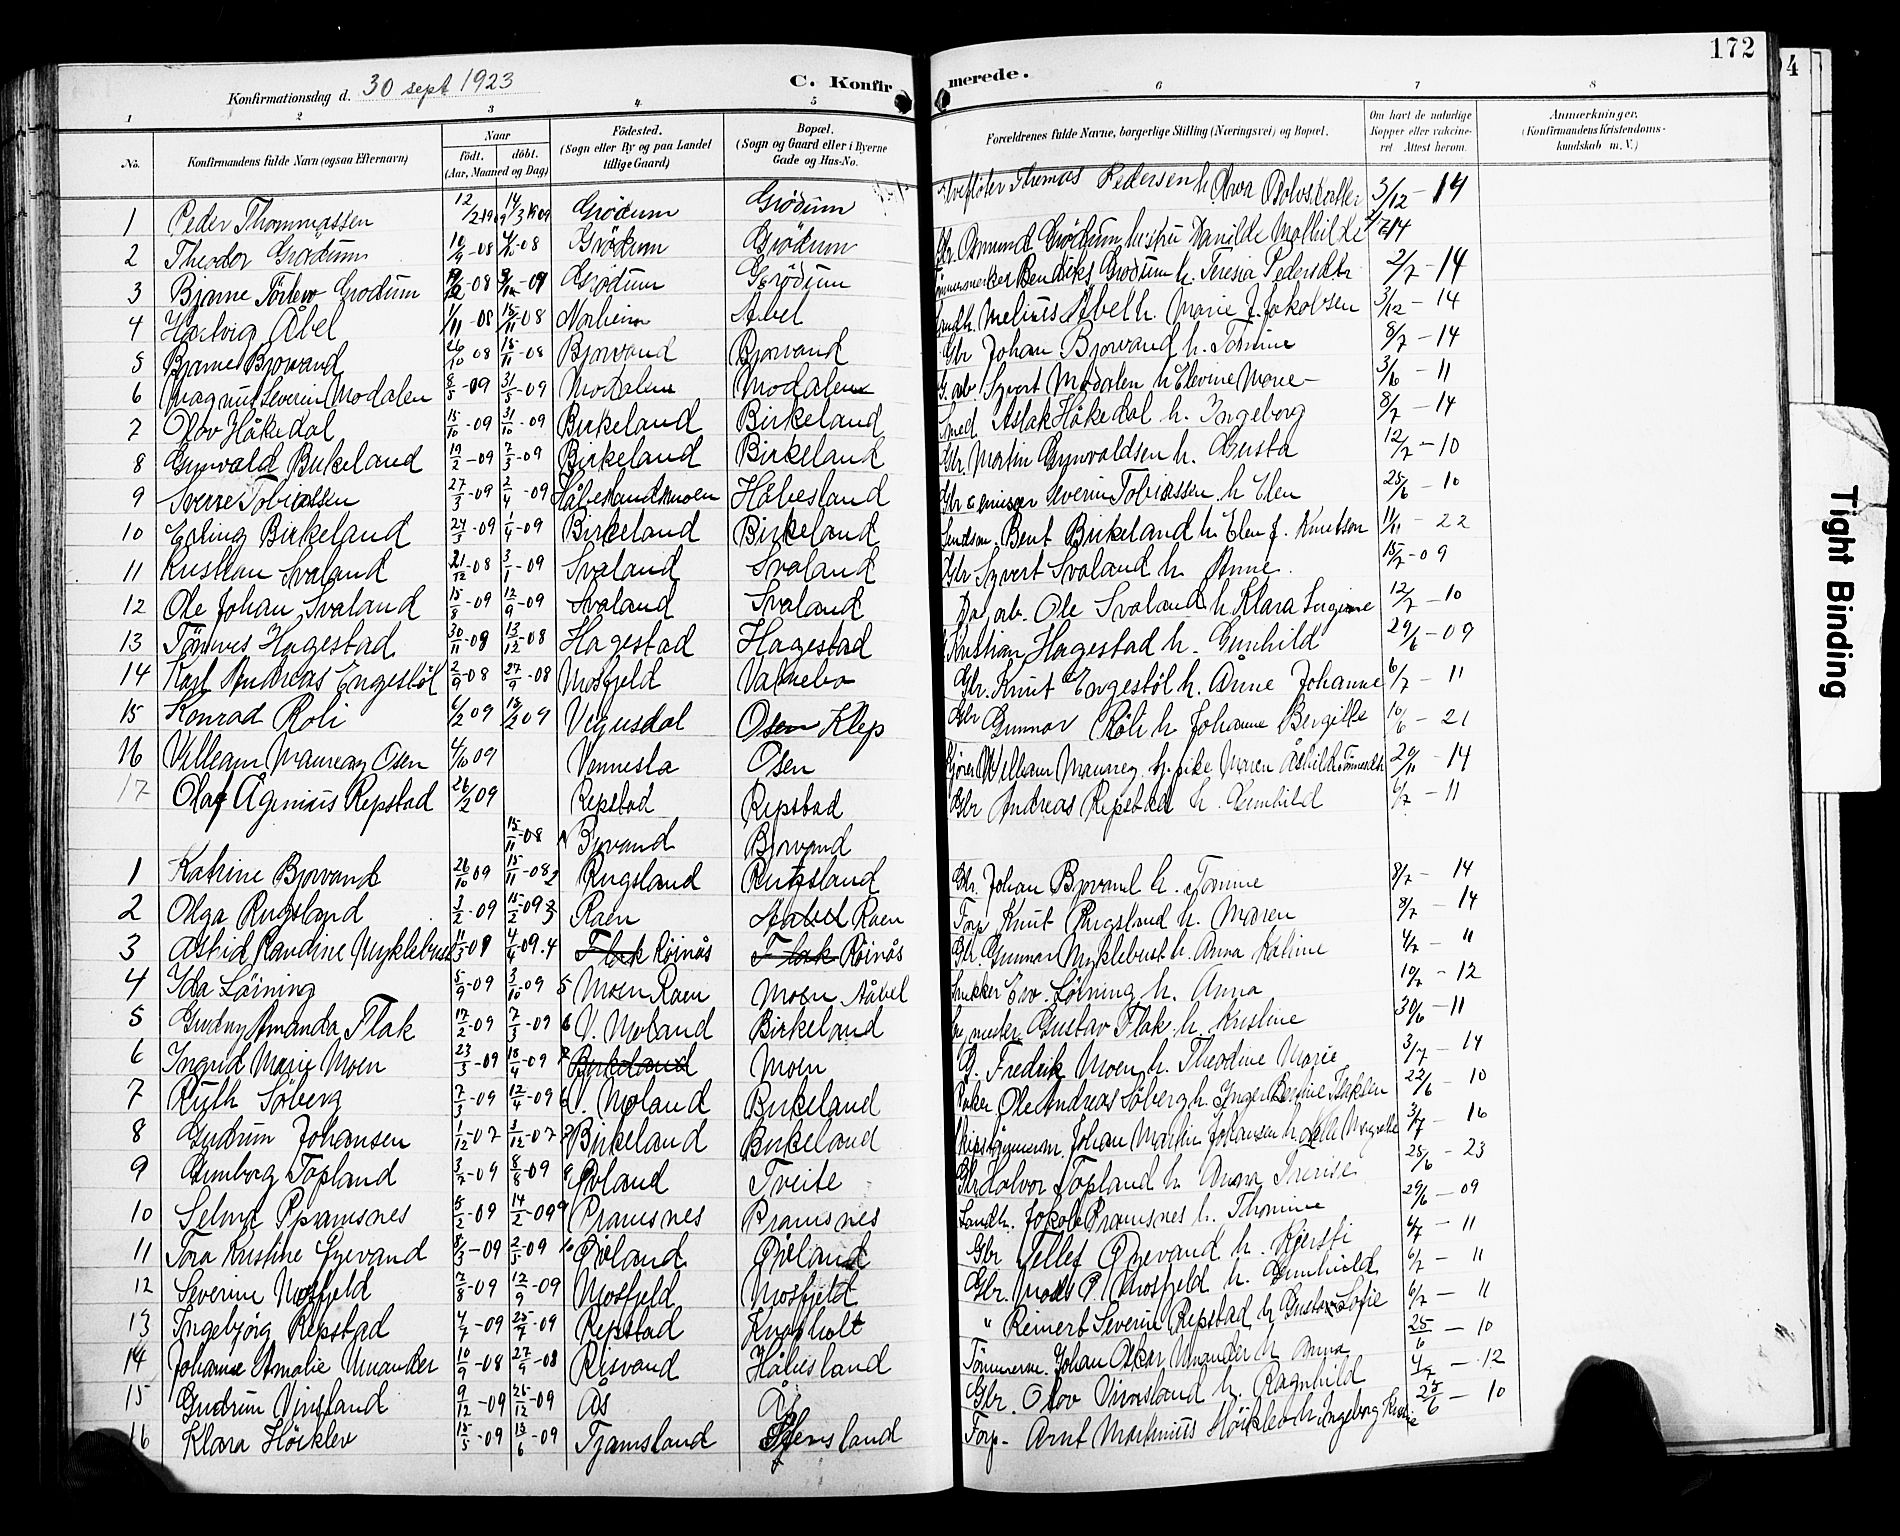 172
4
Konfirmationsdag d. 30 sept 1923
C. Konfirmerede.
1 2 3 4 5 6 7 8
No.
Konfirmandens fulde Navn (ogsaa Efternavn)
Naar
født. døbt.
(Aar, Maaned og Dag)
Fødested.
(Sogn eller By og paa Landet
tillige Gaard)
Bopæl.
(Sogn og Gaard eller i Byerne
Gade og Hus-No.
Forældrenes fulde Navne, borgerlige Stilling (Næringsvei) og Bopæl.
Om havt de naturlige
Kopper eller vakcine-
ret Attest herom.
Anmerkninger.
(Konfirmandens Kristendoms-
kundskab m. V.)
1 Peder Thommassen 12/2 1909 14/3 1909 Grödum Grödum Thomas Pedersen h. 3/12 - 14
2 Theodor Grødum 10/9 -08 -08 Grödum Grödum Gbr. Osmund Grødum hustru Danilde Mathilde
3 Bjarne Torlew Grodum Grødum Grødum Bendiks Grodum h. Teresia Pedersdtr 2/7 - 14
4 Hartvig Åbel 1/11 -08 15/11 -08 Abel Melinis Abel h. Marie J. Jakobsen 3/12 - 14
5 Bjarne Bjorvand 26/10 08 15/11 -08 Bjorvand Bjorvand Gbr Johan Bjorvand h. Tomine 8/7 - 14
6 Magnus Severin Modalen 8/5 -09 31/5 -09 Modalen Modalen G. arb. Syvert Modalen h. Elevine Marie 3/6 - 11
7 Olav Håkedal 15/10 -09 31/10 -09 Birkeland Birkeland Smed Aslak Håkedal h. Ingeborg 8/7 - 14
8 Gunvald Birkeland 19/2 -09 7/3 -09 Birkeland Birkeland Gbr. Martin Gunvaldsen h. Gusta 12/7 - 10
9 Sverre Tobiassen 27/3 -09 2/4 -09 Håbesland Håbesland Gbr Severin Tobiassen h Elen 25/6 - 10
10 Erling Birkeland 24/3 -09 1/4 -09 Birkeland Birkeland Bent Birkeland h. Elen f. Knutson 11/11 - 22
11 Kristian Svaland 21/12 -08 3/1 -09 Svaland Svaland Gbr Syvert Svaland h. Anne. 15/7 -09
12 Ole Johan Svaland 15/8 -09 12/9 -09 Svaland Svaland Da. arb. Ole Svaland h Klara 12/7 - 10
13 Tönnes Hagestad 30/11 -08 13/12 -08 Hagestad Hagestad Kristian Hagestad h. Gunhild 29/6 - 09
14 Karl Andreas Engestöl 2/9 -08 27/9 -08 Mosfjeld Valnebo Gbr. Knut Engestöl h. Anne Johanne 6/7 - 11
15 Konrad Roli 6/2 09 13/2 09 Vegusdal Osen Klep Gbr Gunnar Röli h Johanne Bergitte 10/6 - 21
16 Villeam Maureng Osen 4/10 09 Vennesla Osen William Maureng h. Maren Åshild 20/11 - 14
17 Olaf Ågenius Repstad 26/2 09 Repstad Repstad Gbr Andreas Repstad h. Gunhild 6/7 - 11
1 Katrine Bjorvand 26/10 09 15/11 -08 Bjorvand Bjorvand Gbr. Johan Bjorvand h. Tomine 8/7 - 14
2 Olga Rugsland 3/2 -09 15/11 -08 2 Rugsland Rugsland Forp Knut Rugsland h. Maren 8/7 - 14
3 Astrid Randine Myklebust 15/2 -09 3 Raen Raen Gbr. Gunnar Myklebust h. Anna Katrine 4/7 - 11
4 Ida Löining 5/9 -09 4/4 -09 . 4 Flak Röinås Flak Röinås Snekker Löining h. Anna 10/7 - 12
5 Gudny Amanda Flak 17/2 -09 3/10 -09 5 Moen Raen Moen Aabel Gustav Flak h. Kristine 30/6 - 11
6 Ingrid Marie Moen 23/3 -09 7/3 -09 6 V. Moland Birkeland G. Fredrik Moen h. Theodine Marie 3/7 - 14
7 Ruth Söberg 7/3 -09 18/4 -09 7 Birkeland Moen Ole Andreas Söberg h. Inger Flaksen 22/6 - 10
8 Gudrun Johansen 1/12 -07 12/4 -09 V. Moland Birkeland Johan Martin Johansen h 3/7 - 16
9 Gunborg Topland 3/7 -09 3/12 -07 Birkeland Birkeland Gbr Halvor Topland h Anna 25/6 - 23
10 Selma Pramsnes 5/2 -09 8/8 -09 Tveite Landh. Jakob Pramsnes h. Thomine 29/6 - 09
11 Tora Kristine 8/3 -09 14/2 -09 Pramsnes Pramsnes Gbr Tellef h. Kjersti 4/7 - 11
12 Severine Mosfjeld 7/8 -09 2/5 -09 Gbr. Mads P. Mosfjeld h. Gunhild 6/7 - 11
13 Ingebjörg Repstad 4/7 -09 12/9 -09 Mosfjeld Mosfjeld " Reinert Severin Repstad h Gustava Sofie 6/7 - 11
14 Johanne Amalie Unander 10/9 -08 25/7 -09 Repstad Knapholt Johan Oskar Unander h Anna 25/6 - 10
15 Gudrun 9/12 -09 27/9 -08 Risvand Håbesland Gbr. Olav h. Ragnhild 4/7 - 12
16 Klara Höiklev 15/5 -09 26/12 -09 Ås Forp. Arnt Markinius Höiklev h Ingeborg 25/6 - 10
13/6 -09 Tjamsland
Tight Binding